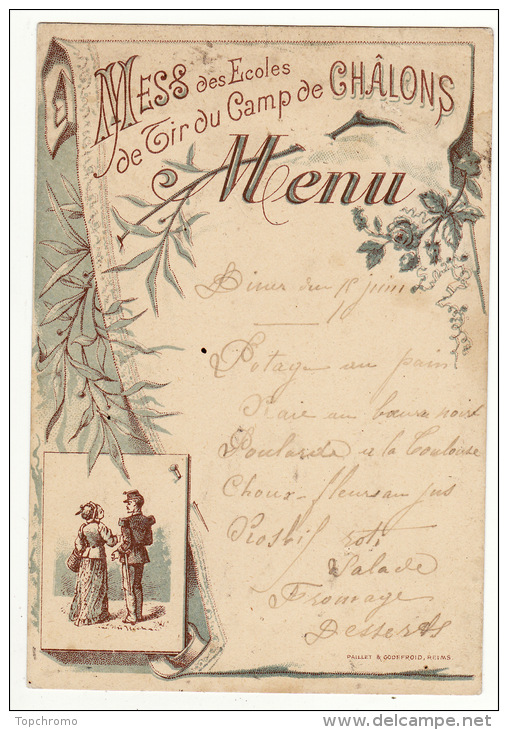 Mess des Ecoles
de Tir du Camp de CHÂLONS
Menu
Diner du 18 juin
Potage au pain
Raie au beurre noir
Poularde à la Toulouse
Choux-fleurs au jus
Rosbif roti
Salade
Fromage
Desserts
PAILLET & GODEFROID, REIMS
Topchromo
www.delcampe.net